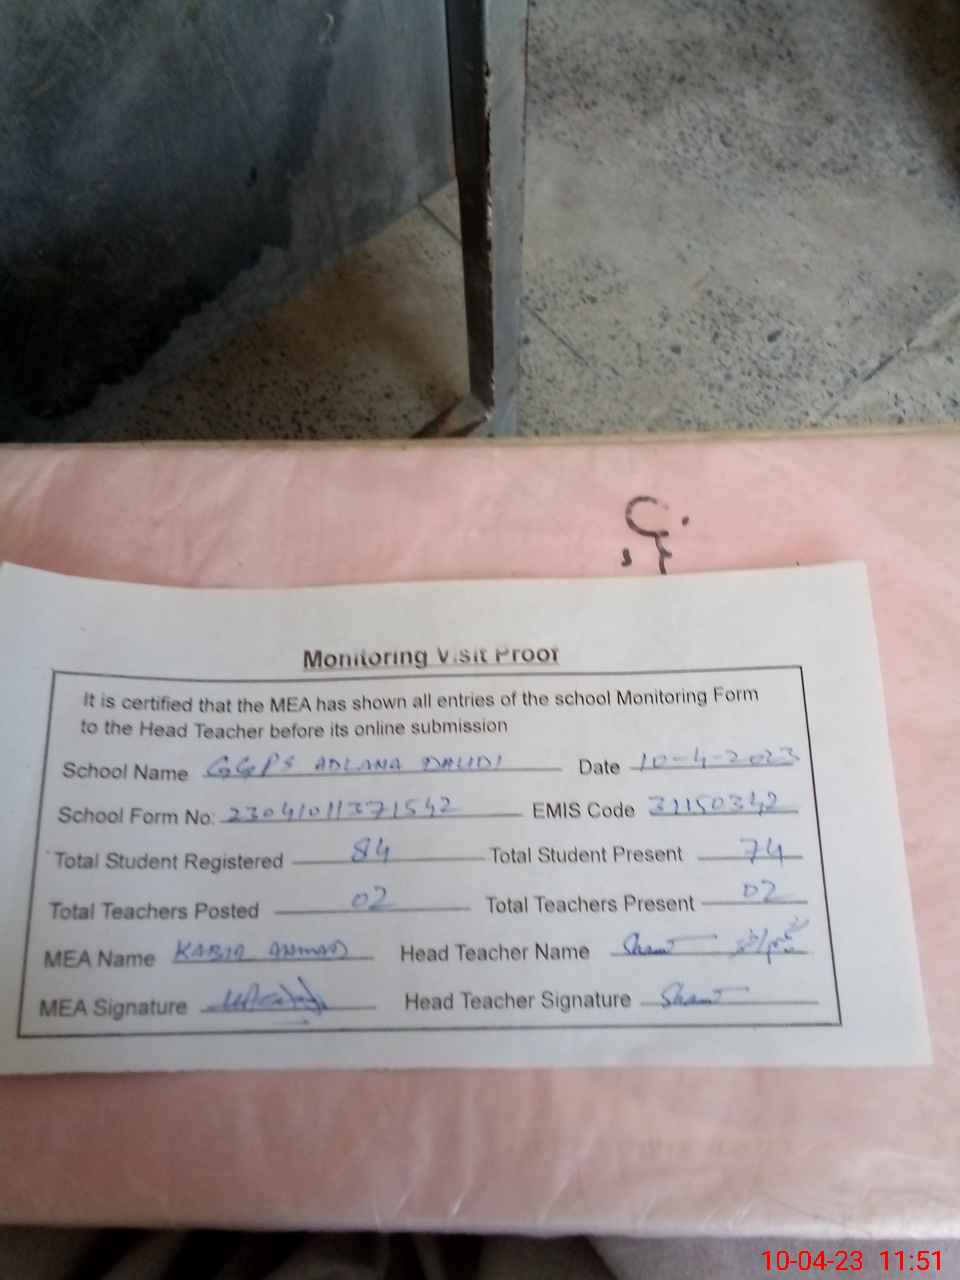 Monitoring Visit Proof
It is certified that the MEA has shown all entries of the school Monitoring Form
to the Head Teacher before its online submission
School Name GGPS ADLANA DAUDI Date 10-4-2023
School Form No: 23041011371542 EMIS Code 31150342
Total Student Registered 84 Total Student Present 74
Total Teachers Posted 02 Total Teachers Present 02
MEA Name KABIR AHMAD Head Teacher Name
MEA Signature Head Teacher Signature
10-04-23 11:51